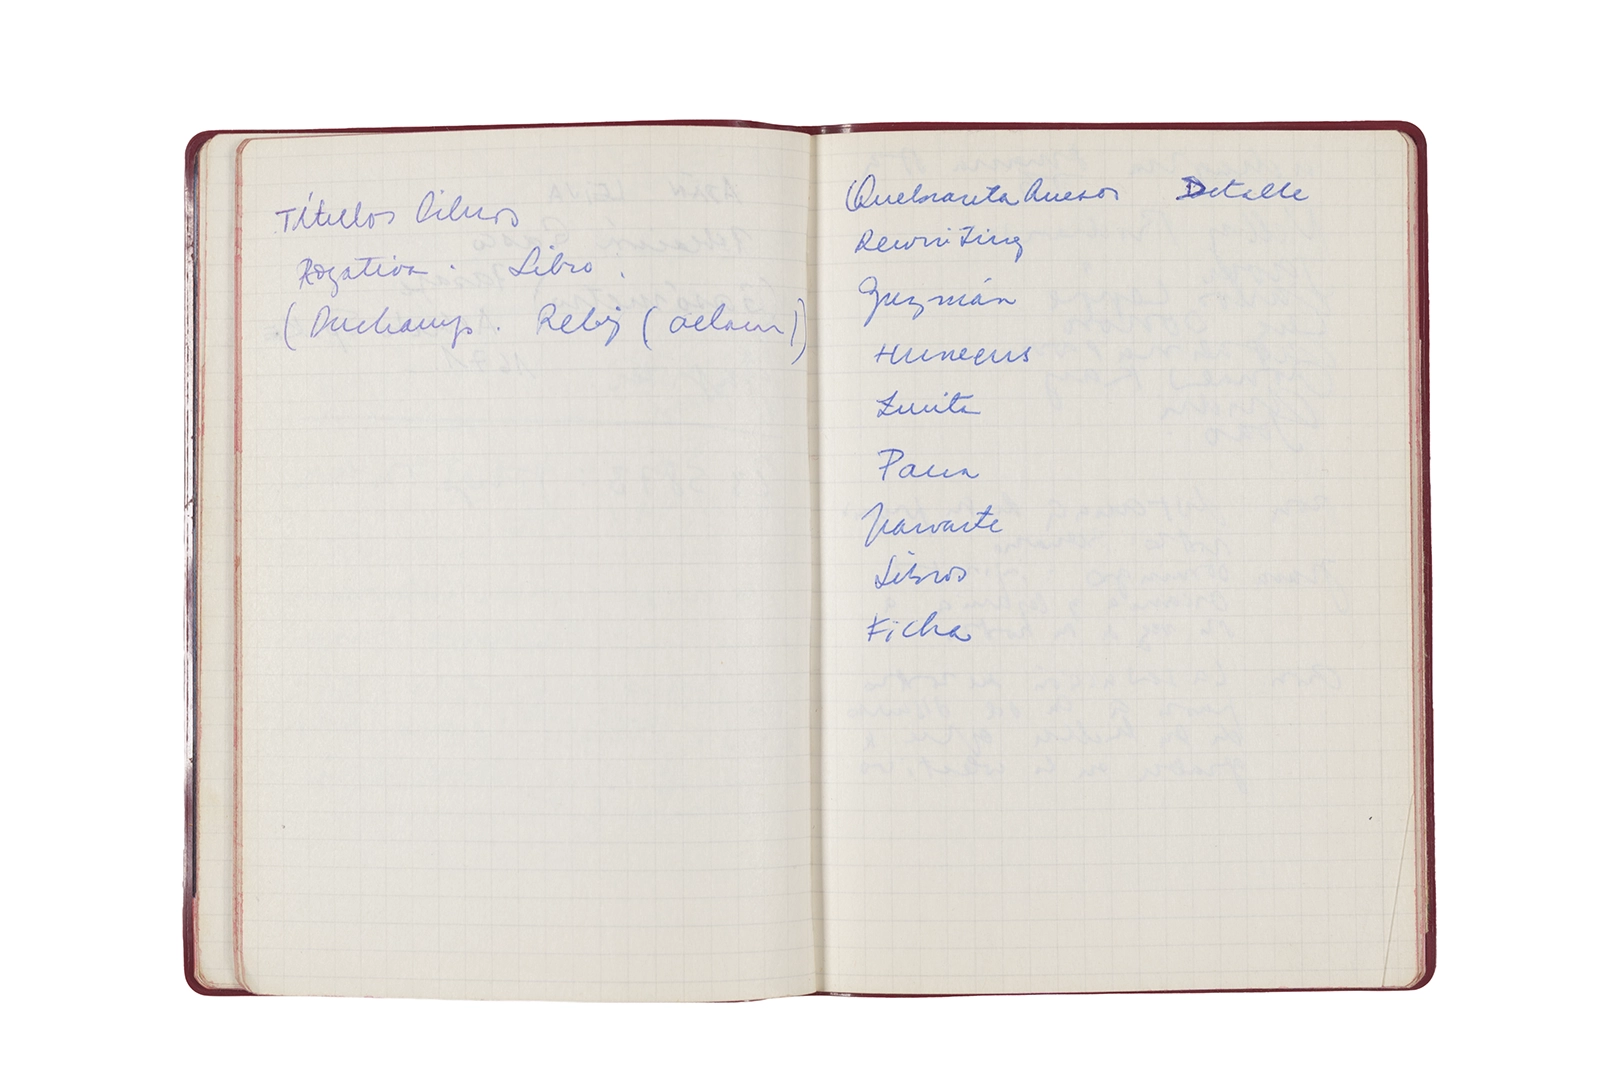 Títulos Libros
Rogativa. Libro.
(Duchamp. Reloj (
Quebrantahuesos Detalle
Rewriting
Guzmán
Huneeus
Zurita
Parra
Yavarte
Libros
Ficha